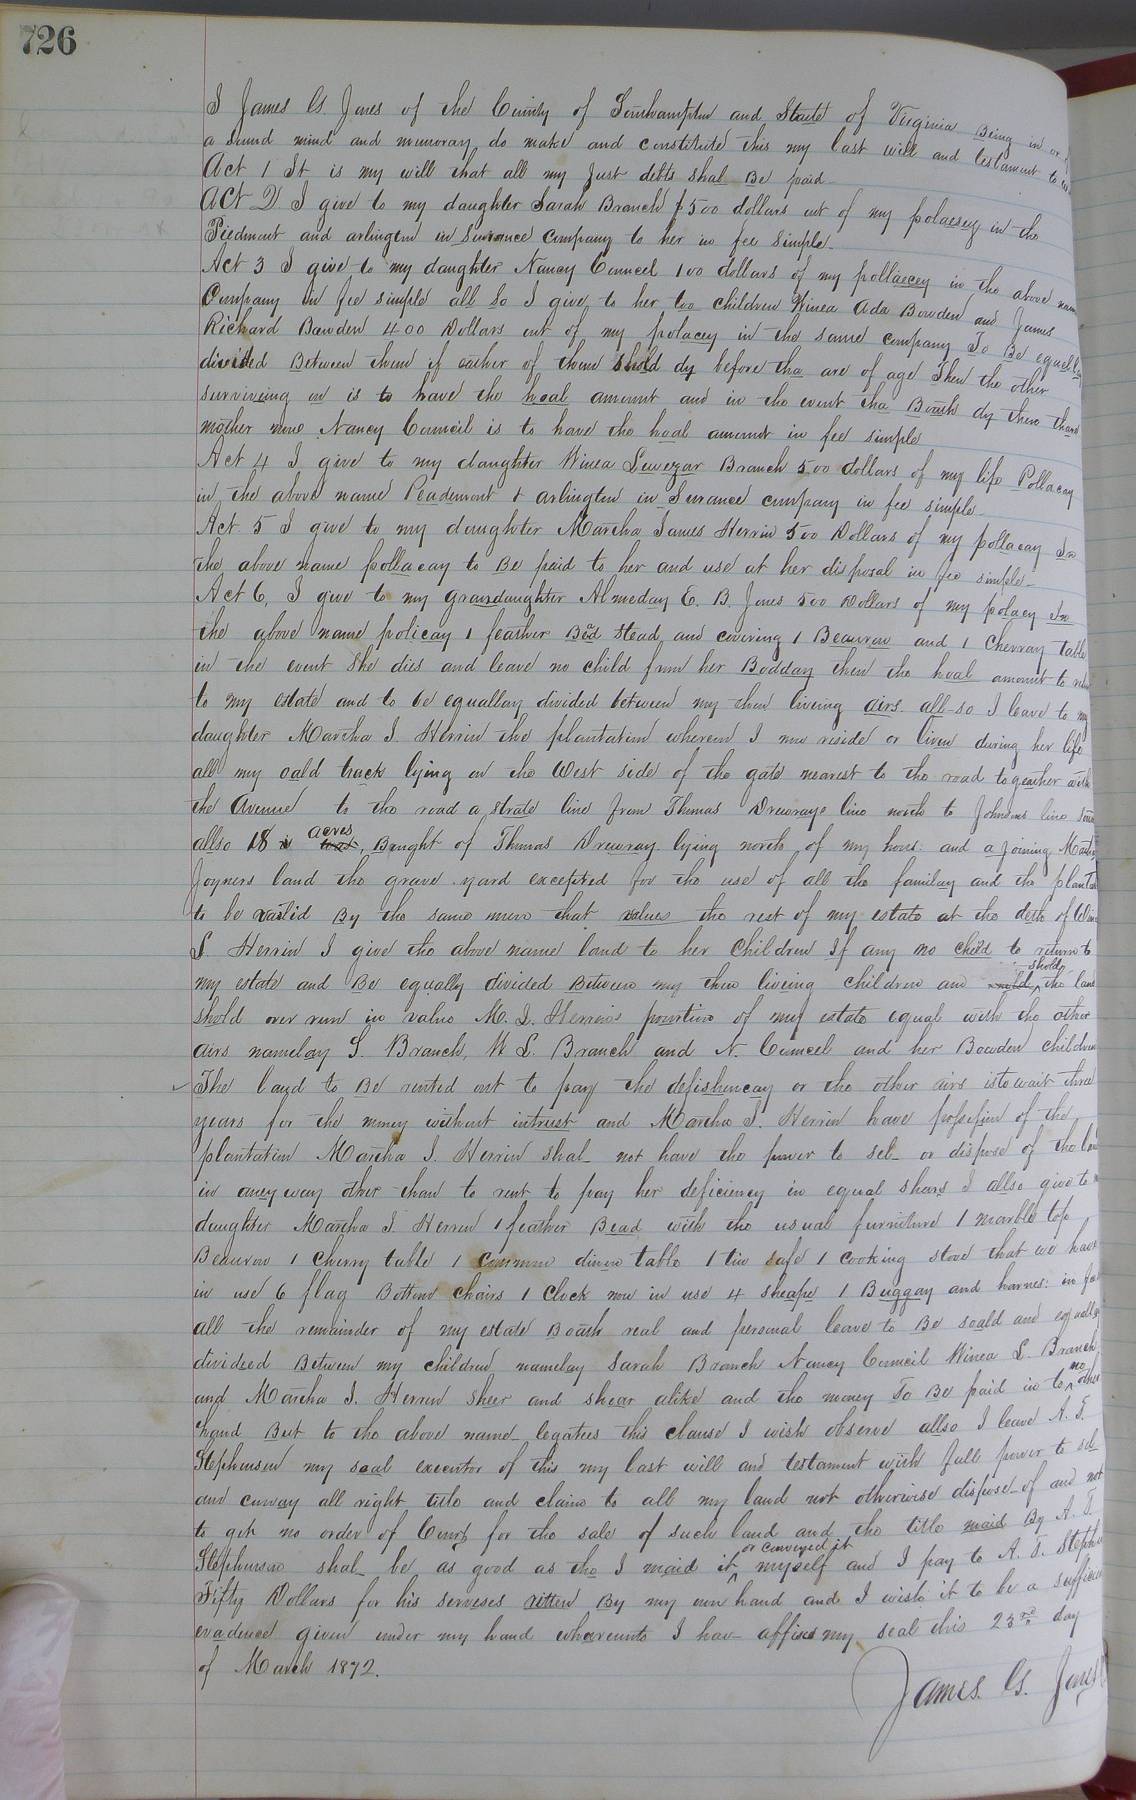 726
I James G. Jones of the County of Southampton and State of Virginia Being in
a sound mind and memoray do make and constitute this my last will and testament to
Act 1 It is my will that all my Just debts shal Be paid
Act 2 I give to my daughter Sarah Branch $500 dollars out of my polacey in the
Piedmont and arlington in Surance Company to her in fee simple
Act 3 I give to my daughter Nancy Councel 100 dollars of my pollacey in the above name
Company in fee simple all So I give to her too children Winea Ada Bowden and James
Richard Bawden 400 Dollars out of my polacey in the same company To Be equally
divided Between them if eather of them shold dy before tha are of age Then the other
surviveing on is to have the hoal amount and in the event tha Boath dy then thare
mother mine Nancy Council is to have the hoal amount in fee simple
Act 4 I give to my daughter Winea Luvezar Branch 500 dollars of my life Pollacay
in the above name Peadmont & arlington in Surance company in fee simple
Act 5 I give to my daughter Martha James Herrin 500 Dollars of my pollacay In
the above name pollacay to Be paid to her and use at her disposal in fee simple
Act 6, I give to my grandaughter Almeday E. B. Jones 500 Dollars of my polacy In
the above name policay 1 feather Bed stead and covering 1 Beaurow and 1 Cherray table
in the event she dies and leave no child from her Bodday then the hoal amount to
to my estate and to be equallay divided between my then liveing airs. all-so I leave to my
daughter Martha J. Herrin the plantation wherein I now reside or liven during her life
all my oald track lying on the West side of the gate nearest to the road togeather with
the Avenue to the road a strate line from Thomas Drewrays line north to Johnsons line
allso 18 acres Bought of Thomas Drewray lying north of my hous and a joining
Joyners land the grave yard excepted for the use of all the familay and the
to be valid By the same men that values the rest of my estate at the deth of
S. Herrin I give the above name land to her Children If any no child to return to
my estate and Be equally divided Between my then liveing children and sholdy the land
shold over run in value M. J. Herrins pourtion of my estate equal with the other
airs namelay S Branch, W L. Branch and N. Councel and her Bowden children
The land to Be rented out to pay the defishencay or the other airs is to wait three
years for the money without intrust and Martha J. Herrin have possession of the
plantation Martha J. Herrin shal not have the power to sel or dispose of the
in aney way other than to rent to pay her deficiency in equal shars I allso give to
daughter Martha J Herrin 1 feather Bead with the usual furniture 1 marble top
Beaurow 1 cherry table 1 common dinen table 1 tin safe 1 cooking stove that we have
in use 6 flag Bottom chairs 1 Clock now in use 4 sheape 1 Buggay and harnes in fee
all the remainder of my estate Boath real and personal leave to Be soald and equally
divideed Between my children namelay Sarah Branch Nancy Council Winea L. Branch
and Martha J. Herrin sheer and shear alike and the money To Be paid in to no other
hand But to the above name legatees this clause I wish observe allso I leave A. S.
Stephenson my soal executor of this my last will and testament with full power to sel
and convay all right title and claim to all my land not otherwise dispose of and not
to get no order of Court for the sale of such land and the title maid By A. S.
Stephenson shal be as good as tho I maid it or conveyed it myself and I pay to A. S.
Fifty Dollars for his serveses ritten By my own hand and I wish it to be a
evadence given under my hand whareunto I hav affixed my seal this 23rd day
of March 1872.
James. G. Jones